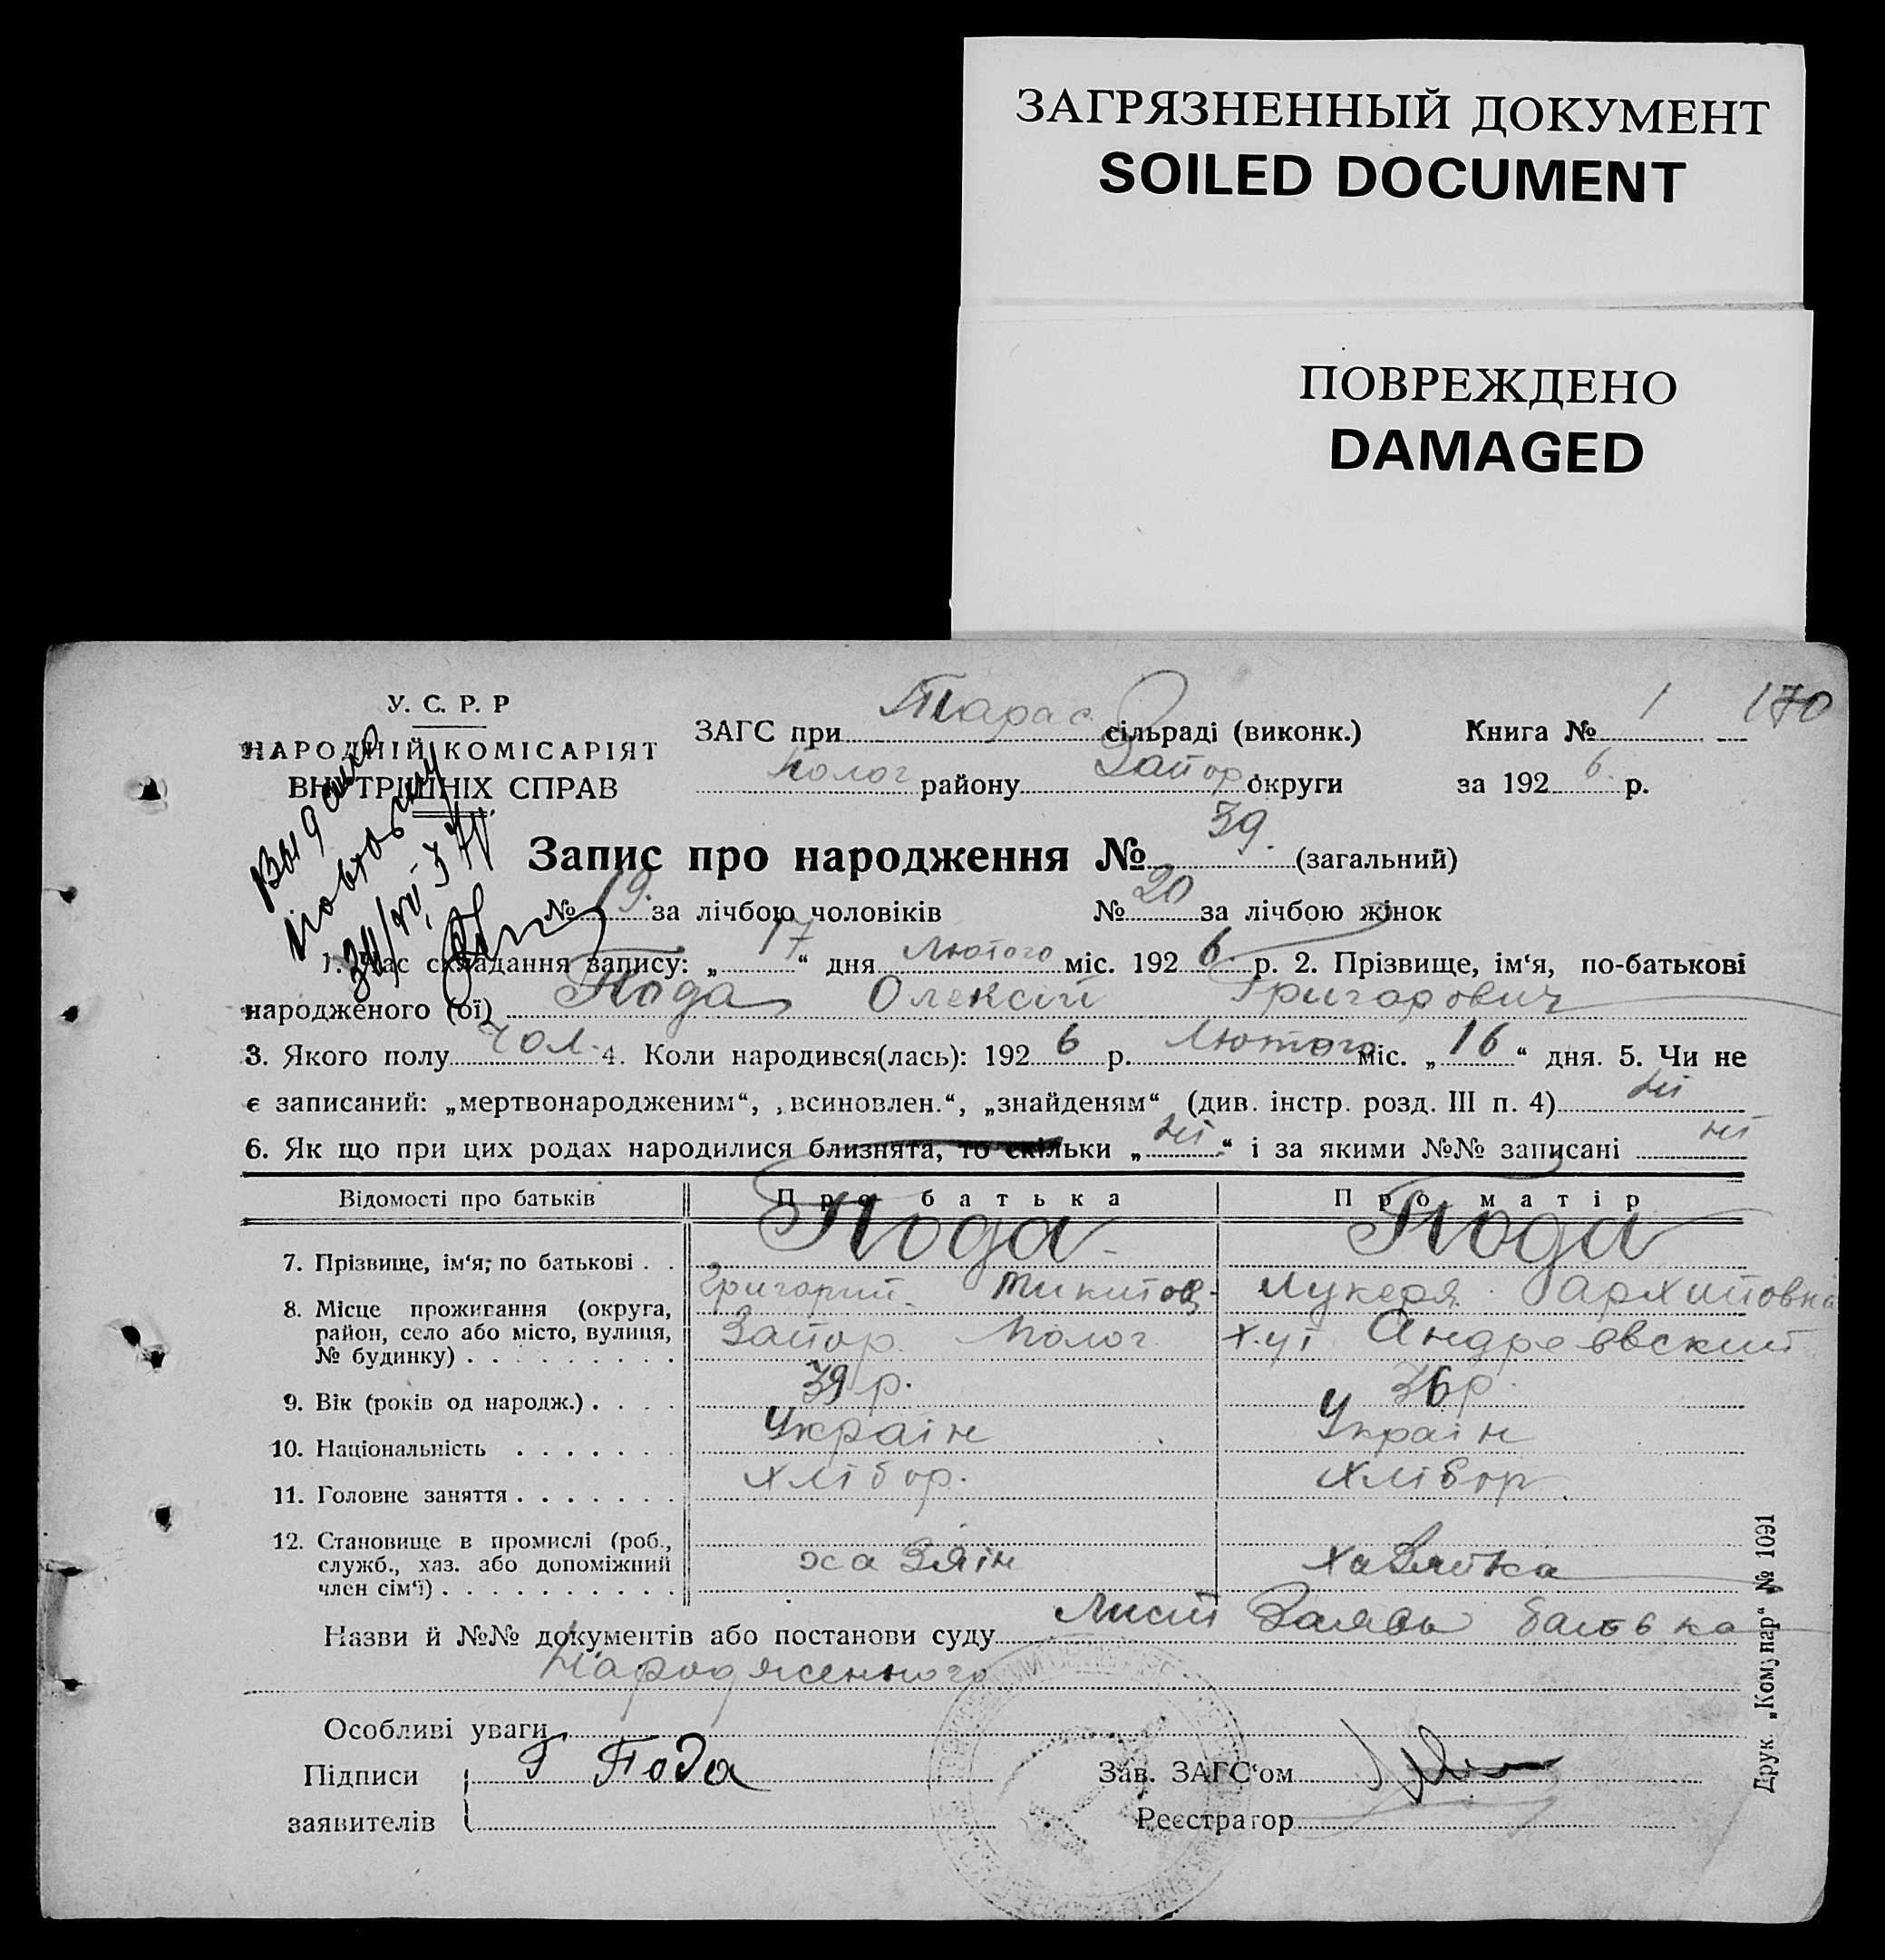 ЗАГРЯЗНЕННЫЙ ДОКУМЕНТ
SOILED DOCUMENT
ПОВРЕЖДЕНО
DAMAGED
У. С. Р. Р
НАРОДНІЙ КОМІСАРІЯТ
ВНУТРІШНІХ СПРАВ
ЗАГС при Тарас сільраді (виконк.) Книга № 1 170
Полог району Запор округи за 1926 р.
Запис про народження № 39. (загальний)
№ 19. за лічбою чоловіків № 20 за лічбою жінок
1. Час складання запису: „17“ дня Лютого міс. 1926 р. 2. Прізвище, ім‘я, по-батькові
народженого (ої) Пода Олексій Григорович
3. Якого полу чол. 4. Коли народився(лась): 1926 р. Лютого міс. „16“ дня. 5. Чи не
є записаний: „мертвонародженим“, „всиновлен.“, „знайденям“ (див. інстр. розд. III п. 4) ні
6. Як що при цих родах народилися близнята, то скільки „ні“ і за якими №№ записані ні
Відомості про батьків Про батька Про матір
7. Прізвище, ім‘я, по батькові . . Пода Пода
Григорий Микитов. Лукеря Архиповна
8. Місце проживання (округа, район, село або місто, вулиця, № будинку) . . . . . . . . . Запор. Полог х.ут Андреевский
9. Вік (років од народж.) . . . . 39 р. 36 р.
10. Національність . . . . . . . Україн Україн
11. Головне заняття . . . . . . . хлібор. хлібор.
12. Становище в промислі (роб., служб., хаз. або допоміжний член сім‘ї) . . . . . . . . . . хазяїн хазяйка
Назви й №№ документів або постанови суду Лист Заяви батька
Народженного
Особливі уваги
Підписи Г Пода Зав. ЗАГС‘ом
заявителів Реєстратор
Друк. „Комунар“ № 1091
Выдано
повторну